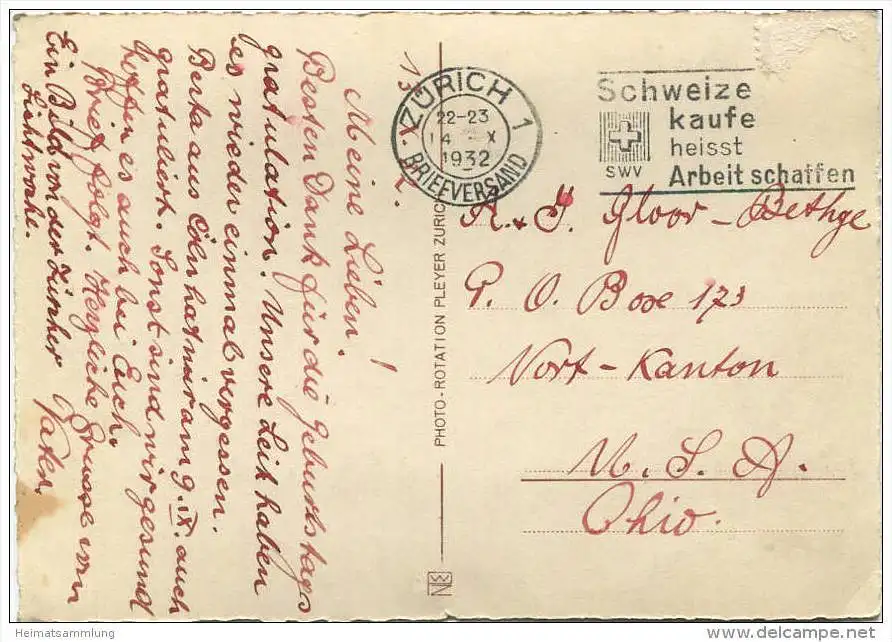 13. X. 32.
Meine Lieben!
Besten Dank für die Geburtstags
gratulation. Unsere Leit haben
es wieder einmal vergessen.
Berta aus Cöln hat mir am 9. IX. auch
gratuliert. Sonst sind wir gesund
hoffen es auch bei Euch.
Brief folgt. Herzliche Grüsse vom
Ein Bild von der Zürcher
Lichtwoche.
ZÜRICH 1
22-23
14. X
1932
BRIEFVERSAND
Schweize
kaufe
heisst
Arbeit schaffen
SWV
A. & J. Gloor-Bethge
P. O. Box 173
Nort-Kanton
U. S. A.
Ohio.
PHOTO-ROTATION PLEYER ZURICH
Heimatsammlung
www.delcampe.net